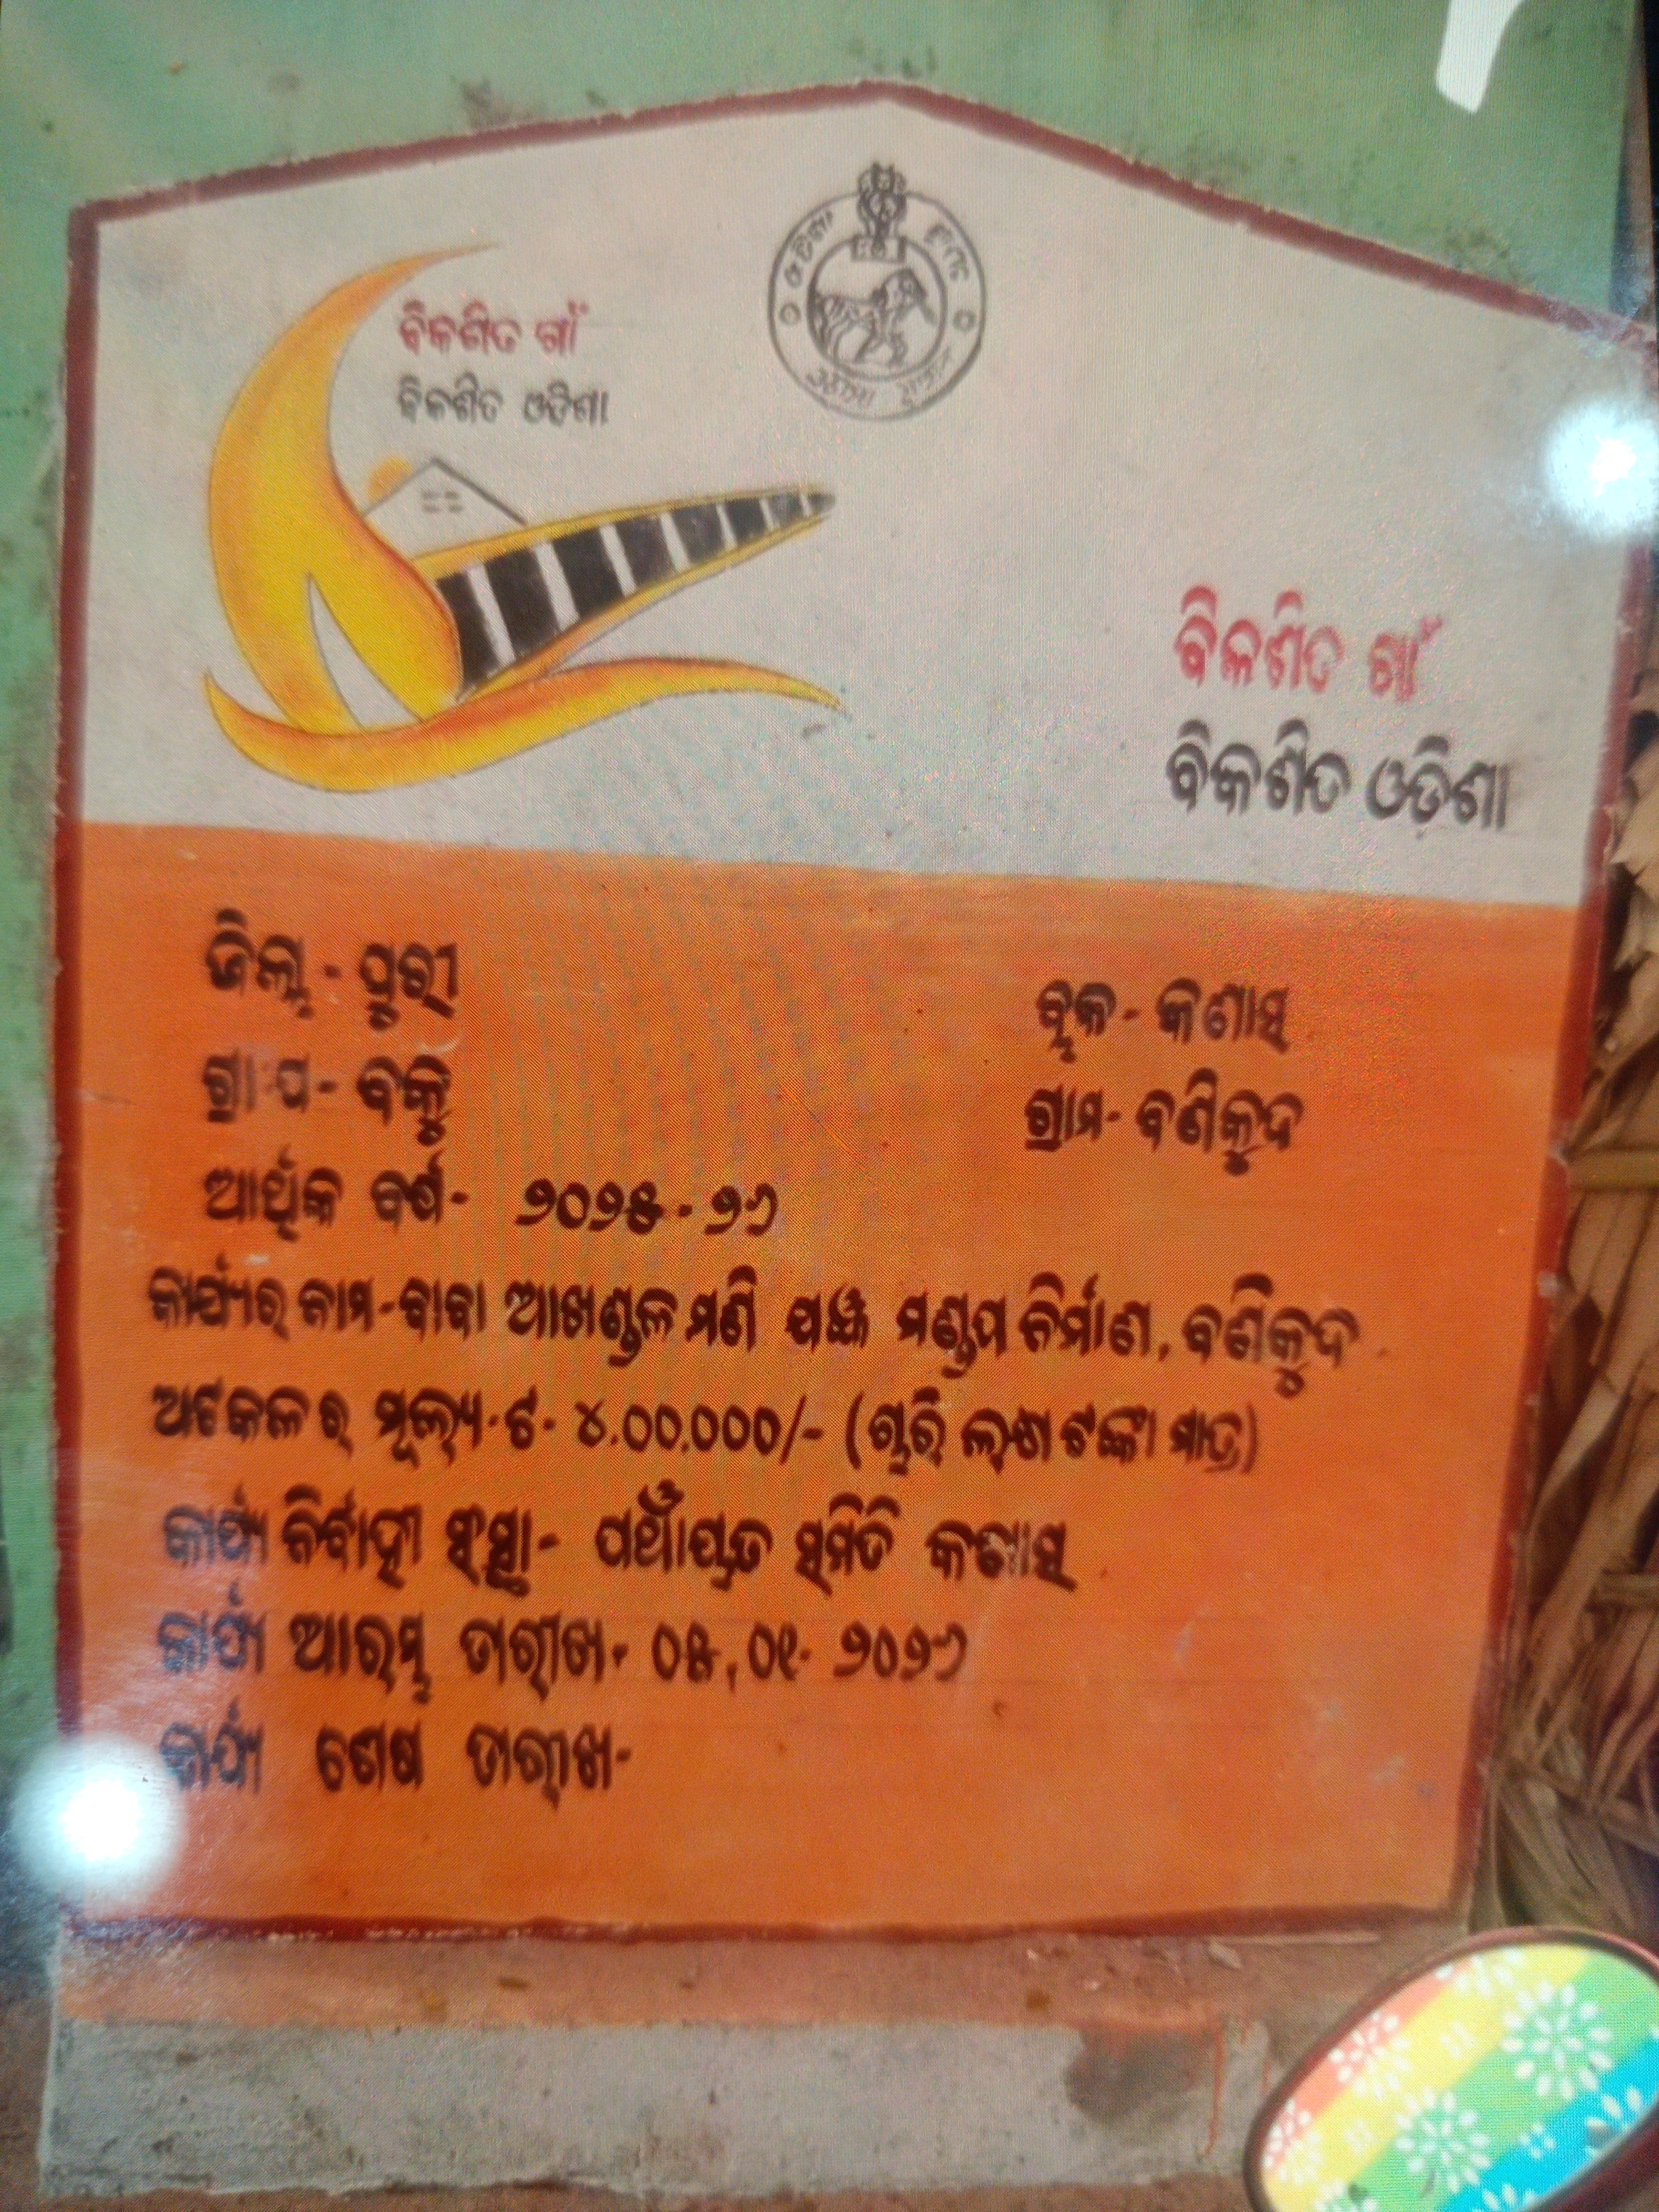 ବିକଶିତ ଗାଁ
ବିକଶିତ ଓଡିଶା
ବିକଶିତ ଗାଁ
ବିକଶିତ ଓଡିଶା
ଜିଲ୍ଲା - ପୁରୀ
ବ୍ଲକ - କଣାସ
ଗ୍ରା.ପ - ବକୁ
ଗ୍ରାମ - ବଣିକୁଦ
ଆର୍ଥିକ ବର୍ଷ - ୨୦୨୫ - ୨୬
କାର୍ଯ୍ୟର ନାମ - ବାବା ଆଖଣ୍ଡଳ ମଣି ଯଜ୍ଞ ମଣ୍ଡପ ନିର୍ମାଣ, ବଣିକୁଦ
ଅଟକଳର ମୂଲ୍ୟ - ଟ - ୪.୦୦.୦୦୦/- (ଚାରି ଲକ୍ଷ ଟଙ୍କା ମାତ୍ର)
କାର୍ଯ୍ୟ ନିର୍ବାହୀ ସଂସ୍ଥା - ପଞ୍ଚାୟତ ସମିତି କଣାସ
କାର୍ଯ୍ୟ ଆରମ୍ଭ ତାରୀଖ - ୦୫.୦୧.୨୦୨୬
କାର୍ଯ୍ୟ ଶେଷ ତାରୀଖ -